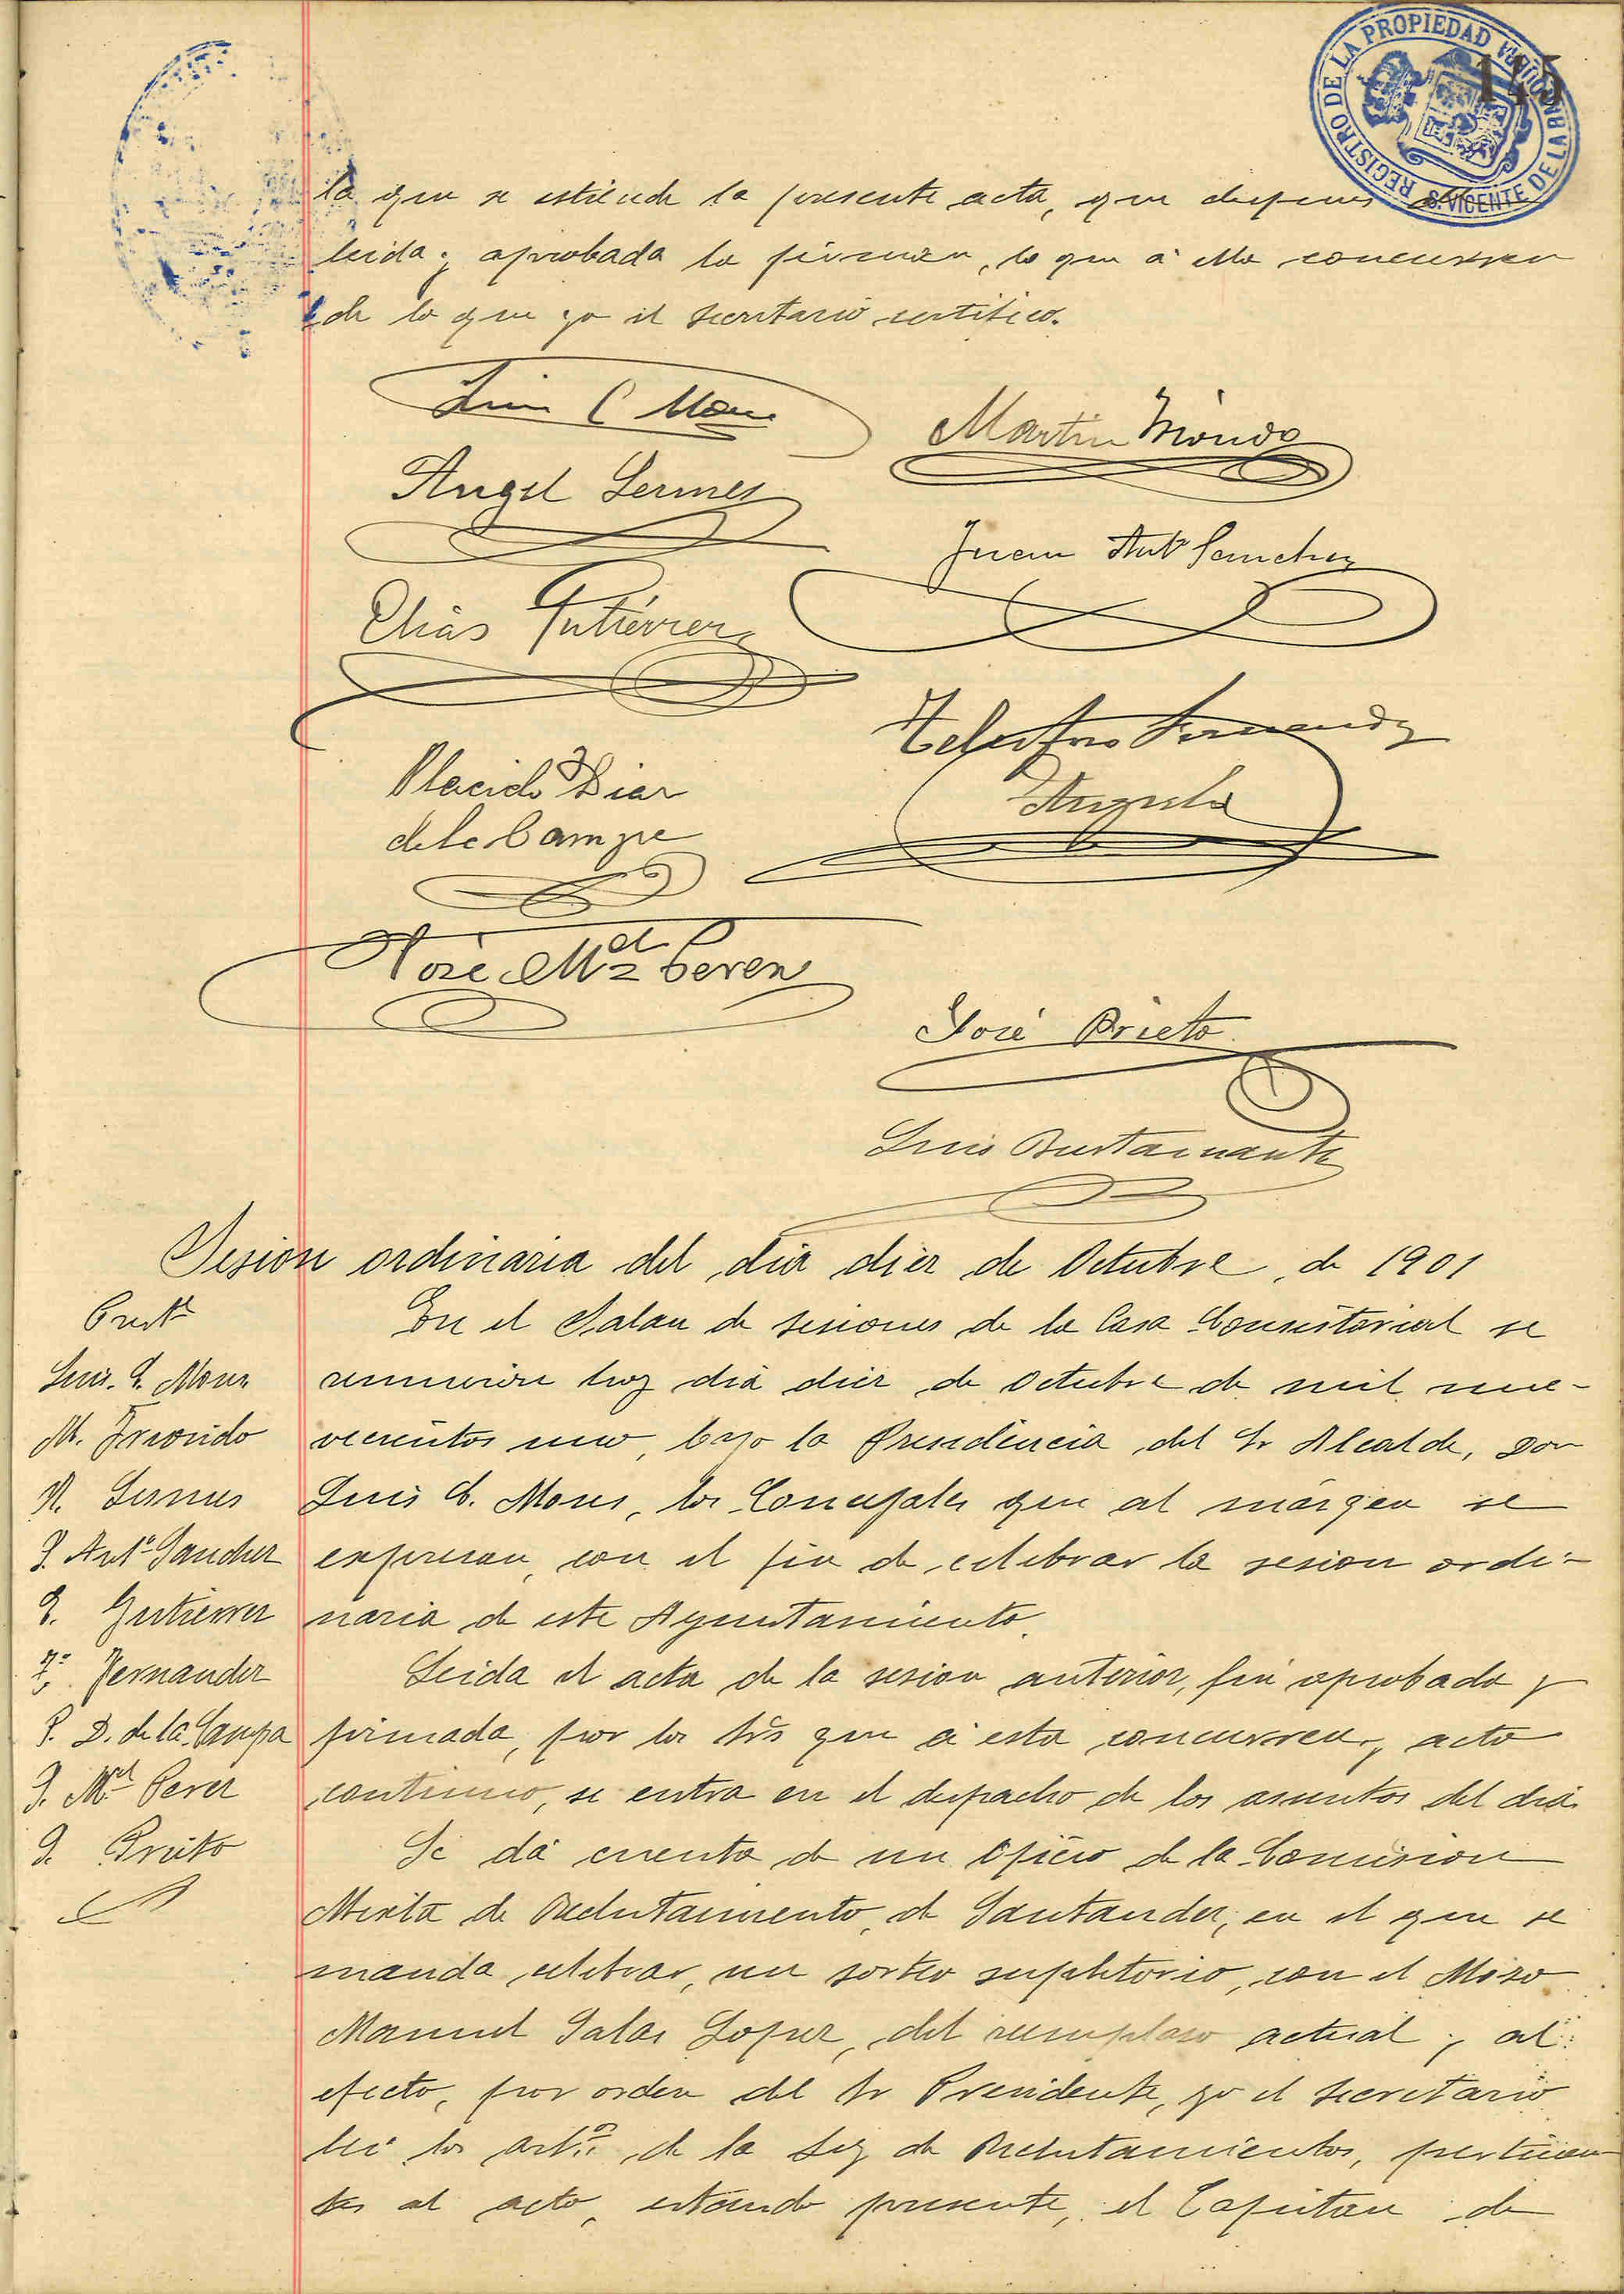 REGISTRO DE LA PROPIEDAD
S. VICENTE DE LA BARQUERA
115
la que se estiende la presente acta, que despues de
leida y aprobada la firman, lo que á ella concurren
de lo que yo el Secretario certifico.
Luis C Mone
Martin Yriondo
Angel Lermes
Juan Antº Sanchez
Elias Gutiérrez
Telesforo Fernandez
Angulo
Placido Diaz
de la Campa
José Mel Perez
José Prieto
Luis Bustamante
Sesion ordinaria del dia diez de Octubre, de 1901
Preste
En el Salon de sesiones de la Casa Consistorial se
Luis. C. Mone
reunieron hoy dia diez de Octubre de mil nue-
M. Yriondo
vecientos uno, bajo la Presidencia del Sr Alcalde, Don
A. Lermes
Luis C. Mone, los Concejales que al márgen se
J. Antº Sanchez
expresan, con el fin de celebrar la sesion ordi-
E. Gutierrez
naria de este Ayuntamiento.
Tº Fernandez
Leida el acta de la sesion anterior, fué aprobada y
P. D. de la Campa
firmada, por los Srs que á esta concurren, y acto
J. Mel Perez
continuo, se entra en el despacho de los asuntos del dia.
J. Prieto
Se dá cuenta de un oficio de la Comision
Mixta de Reclutamiento, de Santander, en el que se
manda celebrar, un sorteo supletorio, con el Mozo
Manuel Salas Lopez, del reemplazo actual, y al
efecto, por orden del Sr Presidente, yo el Secretario
lei los artos de la Ley de Reclutamientos, pertinen-
tes al acto, estando presente, el Capitan de